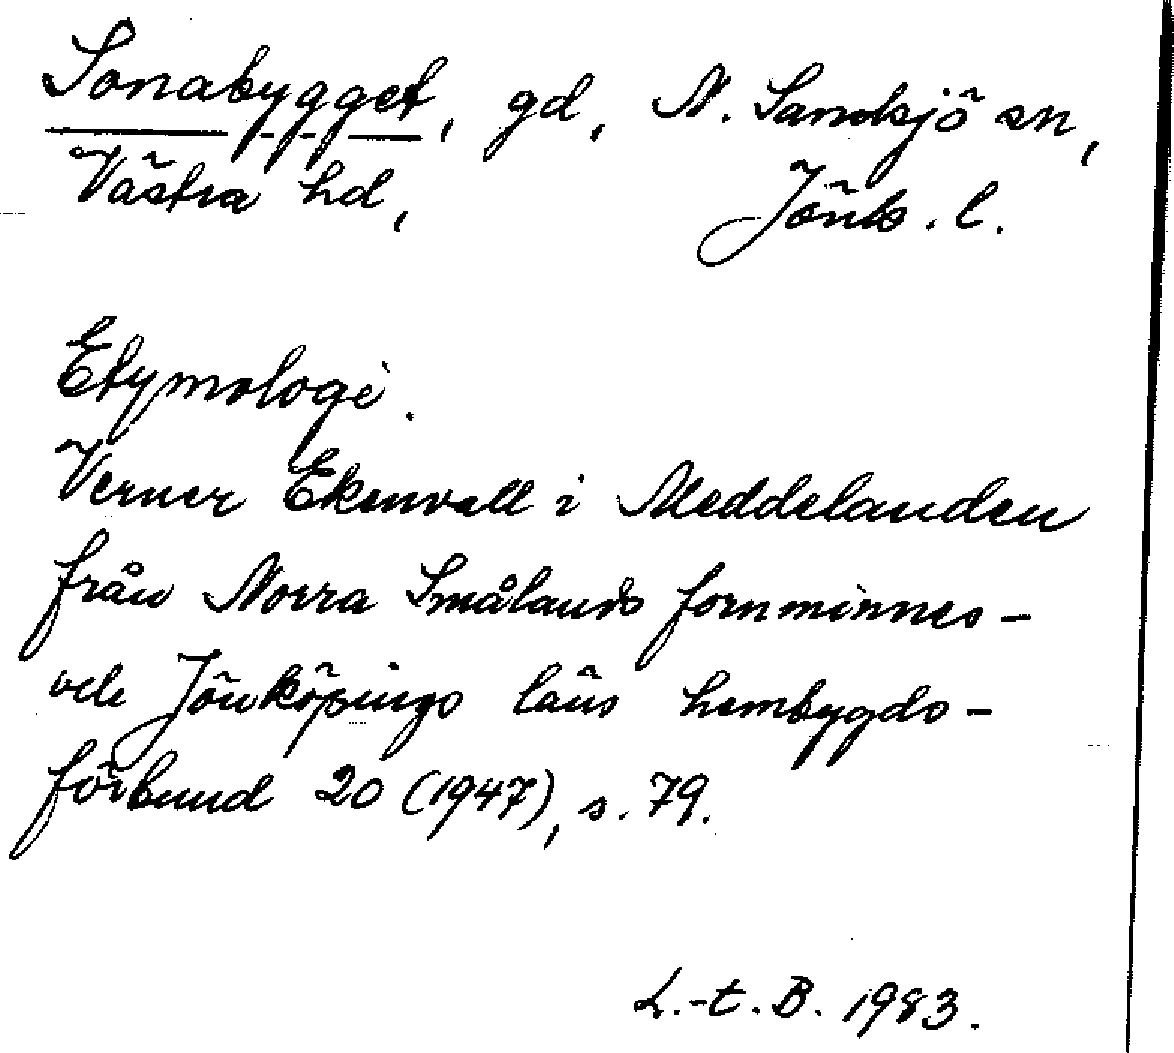 Sonabygget, gd, N. Sandsjö sn,
Västra hd, Jönk. l.
Etymologi.
Verner Ekenvall i Meddelanden
från Norra Smålands fornminnes-
och Jönköpings läns hembygds-
förbund 20 (1947), s. 79.
L.-t. B. 1983.